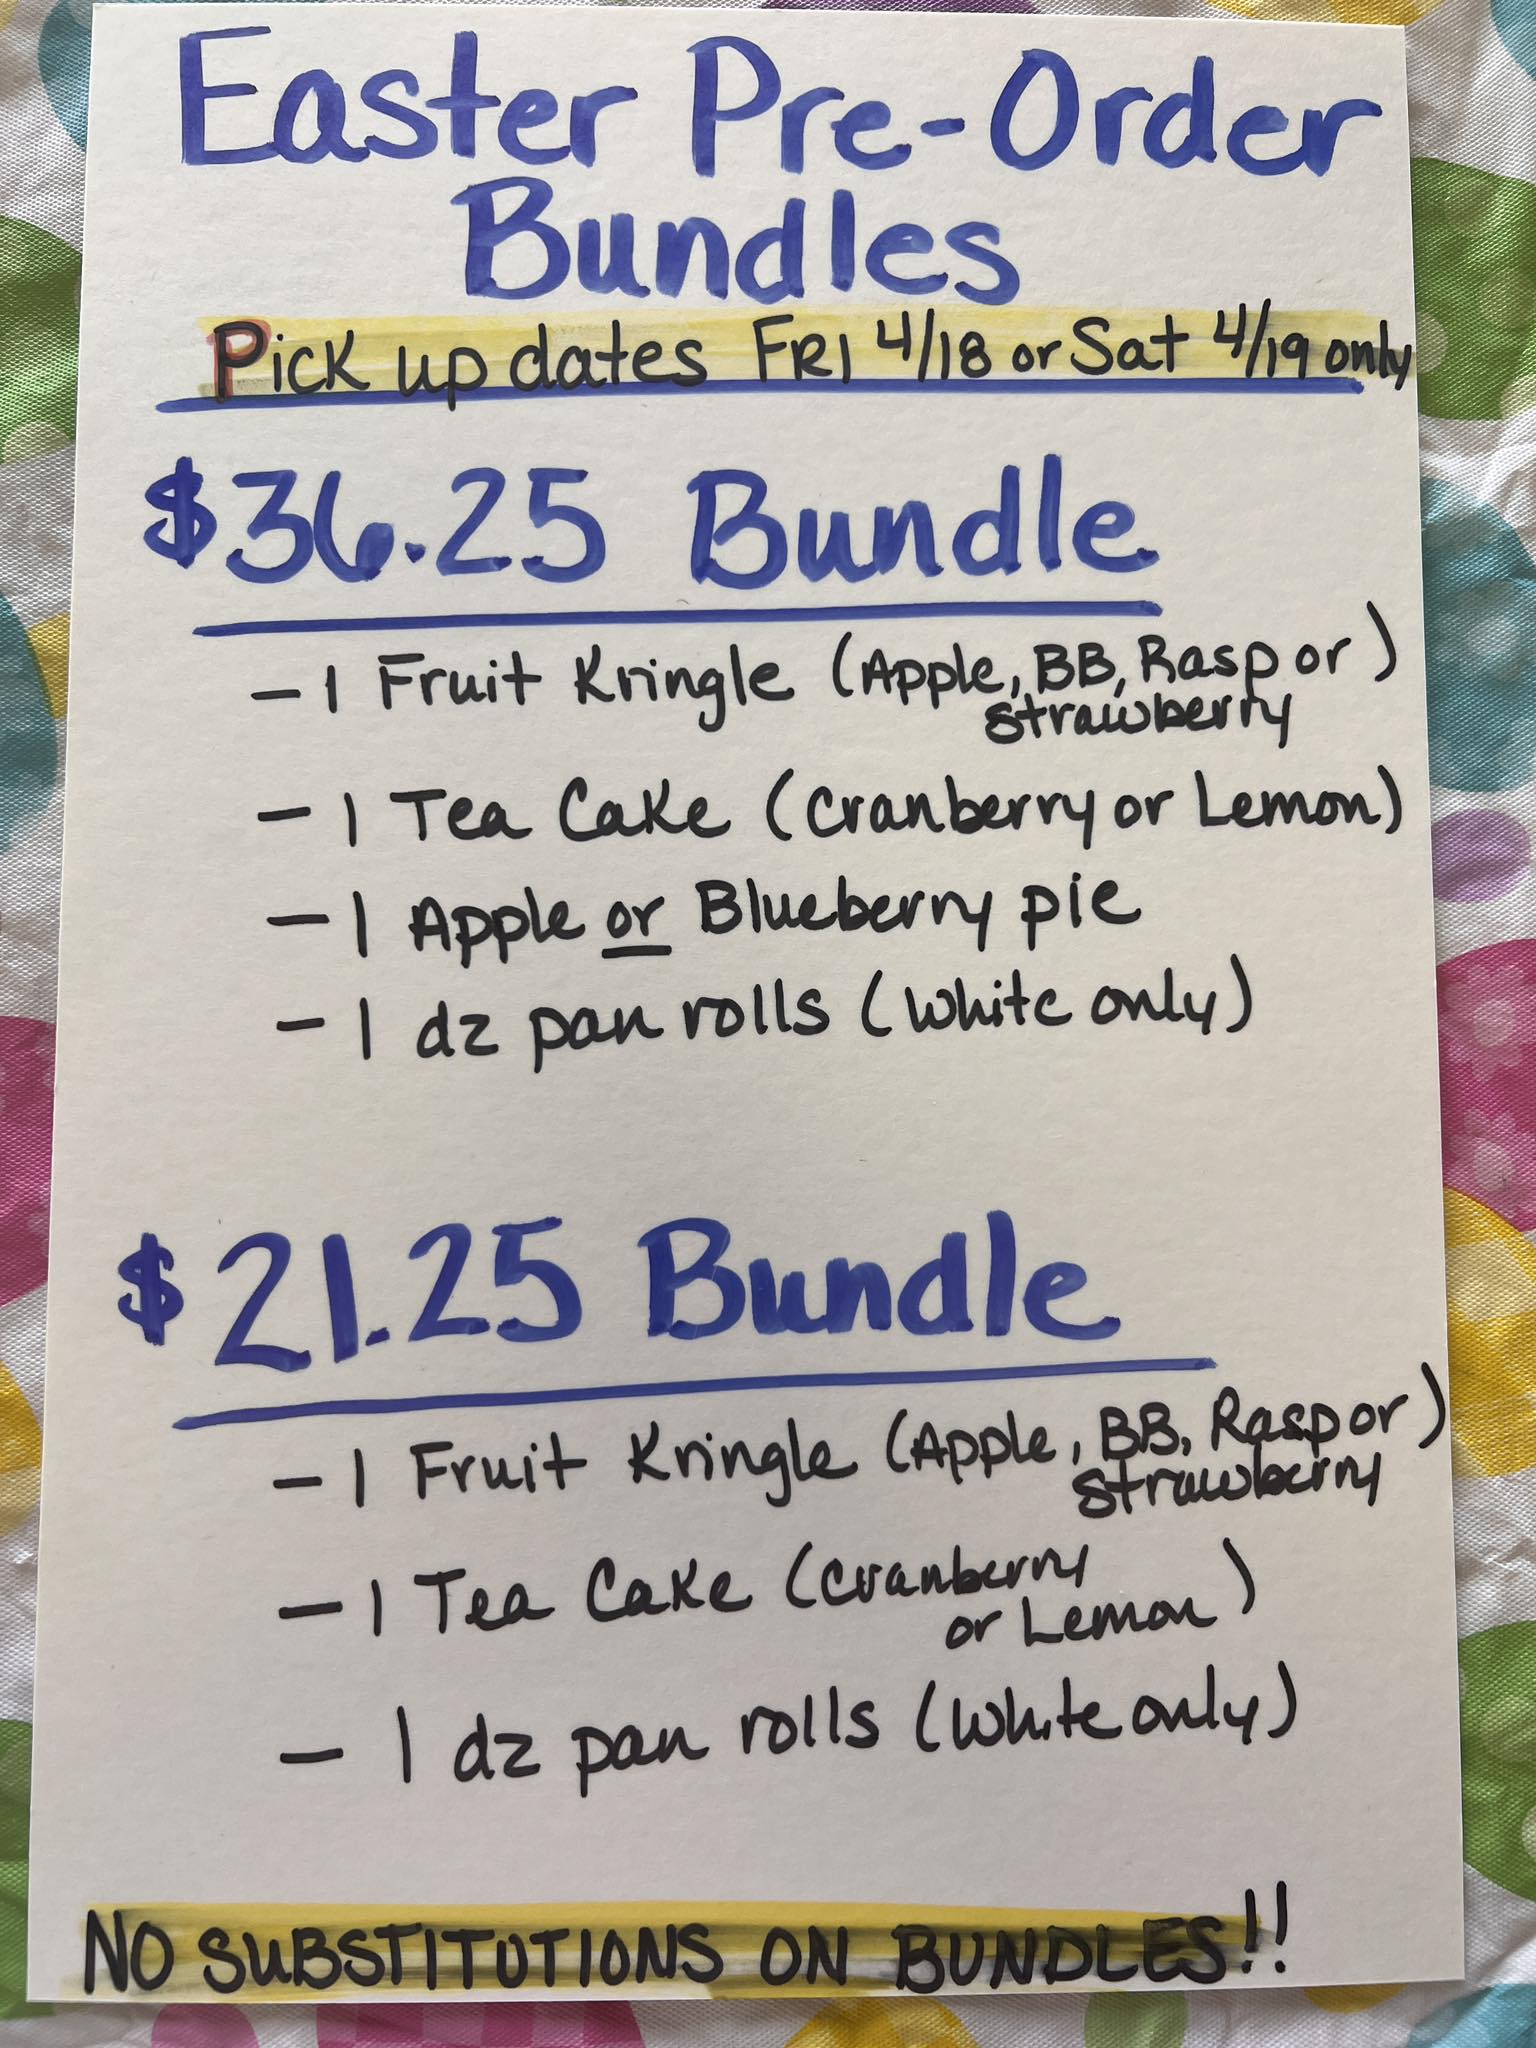 Easter Pre-Order
Bundles
Pick up dates FRI 4/18 or Sat 4/19 only
$36.25 Bundle
- 1 Fruit Kringle (Apple, BB, Rasp or)
strawberry
- 1 Tea Cake (Cranberry or Lemon)
- 1 Apple or Blueberry pie
- 1 dz pan rolls (White only)
$21.25 Bundle
- 1 Fruit Kringle (Apple, BB, Rasp or)
strawberry
- 1 Tea Cake (Cranberry
or Lemon)
- 1 dz pan rolls (White only)
NO SUBSTITUTIONS ON BUNDLES!!